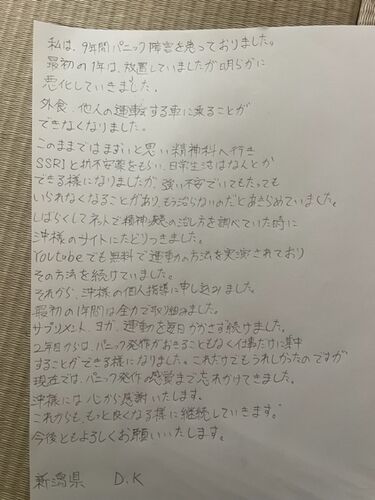 私は、9年間パニック障害を患っておりました。
最初の1年は、放置していましたが明らかに
悪化していきました。
外食、他人の運転する車に乗ることが
できなくなりました。
このままではまずいと思い精神科へ行き
SSRIと抗不安薬をもらい、日常生活はなんとか
できる様になりましたが、強い不安でいてもたっても
いられなくなることがあり、もう治らないのだとあきらめていました。
しばらくしてネットで精神疾患の治し方を調べていた時に
沖様のサイトにたどりつきました。
YouTubeでも無料で運動の方法を実演されており
その方法を続けていました。
それから、沖様の個人指導に申しこみました。
最初の1年間は全力で取り組みました。
サプリメント、ヨガ、運動を毎日かかさず続けました。
2年目からは、パニック発作がおきることもなく仕事だけに集中
することができる様になりました。これだけでもうれしかったのですが
現在では、パニック発作の感覚まで忘れかけてきました。
沖様には心から感謝いたします。
これからも、もっと良くなる様に継続していきます。
今後ともよろしくお願いいたします。
新潟県 D.K